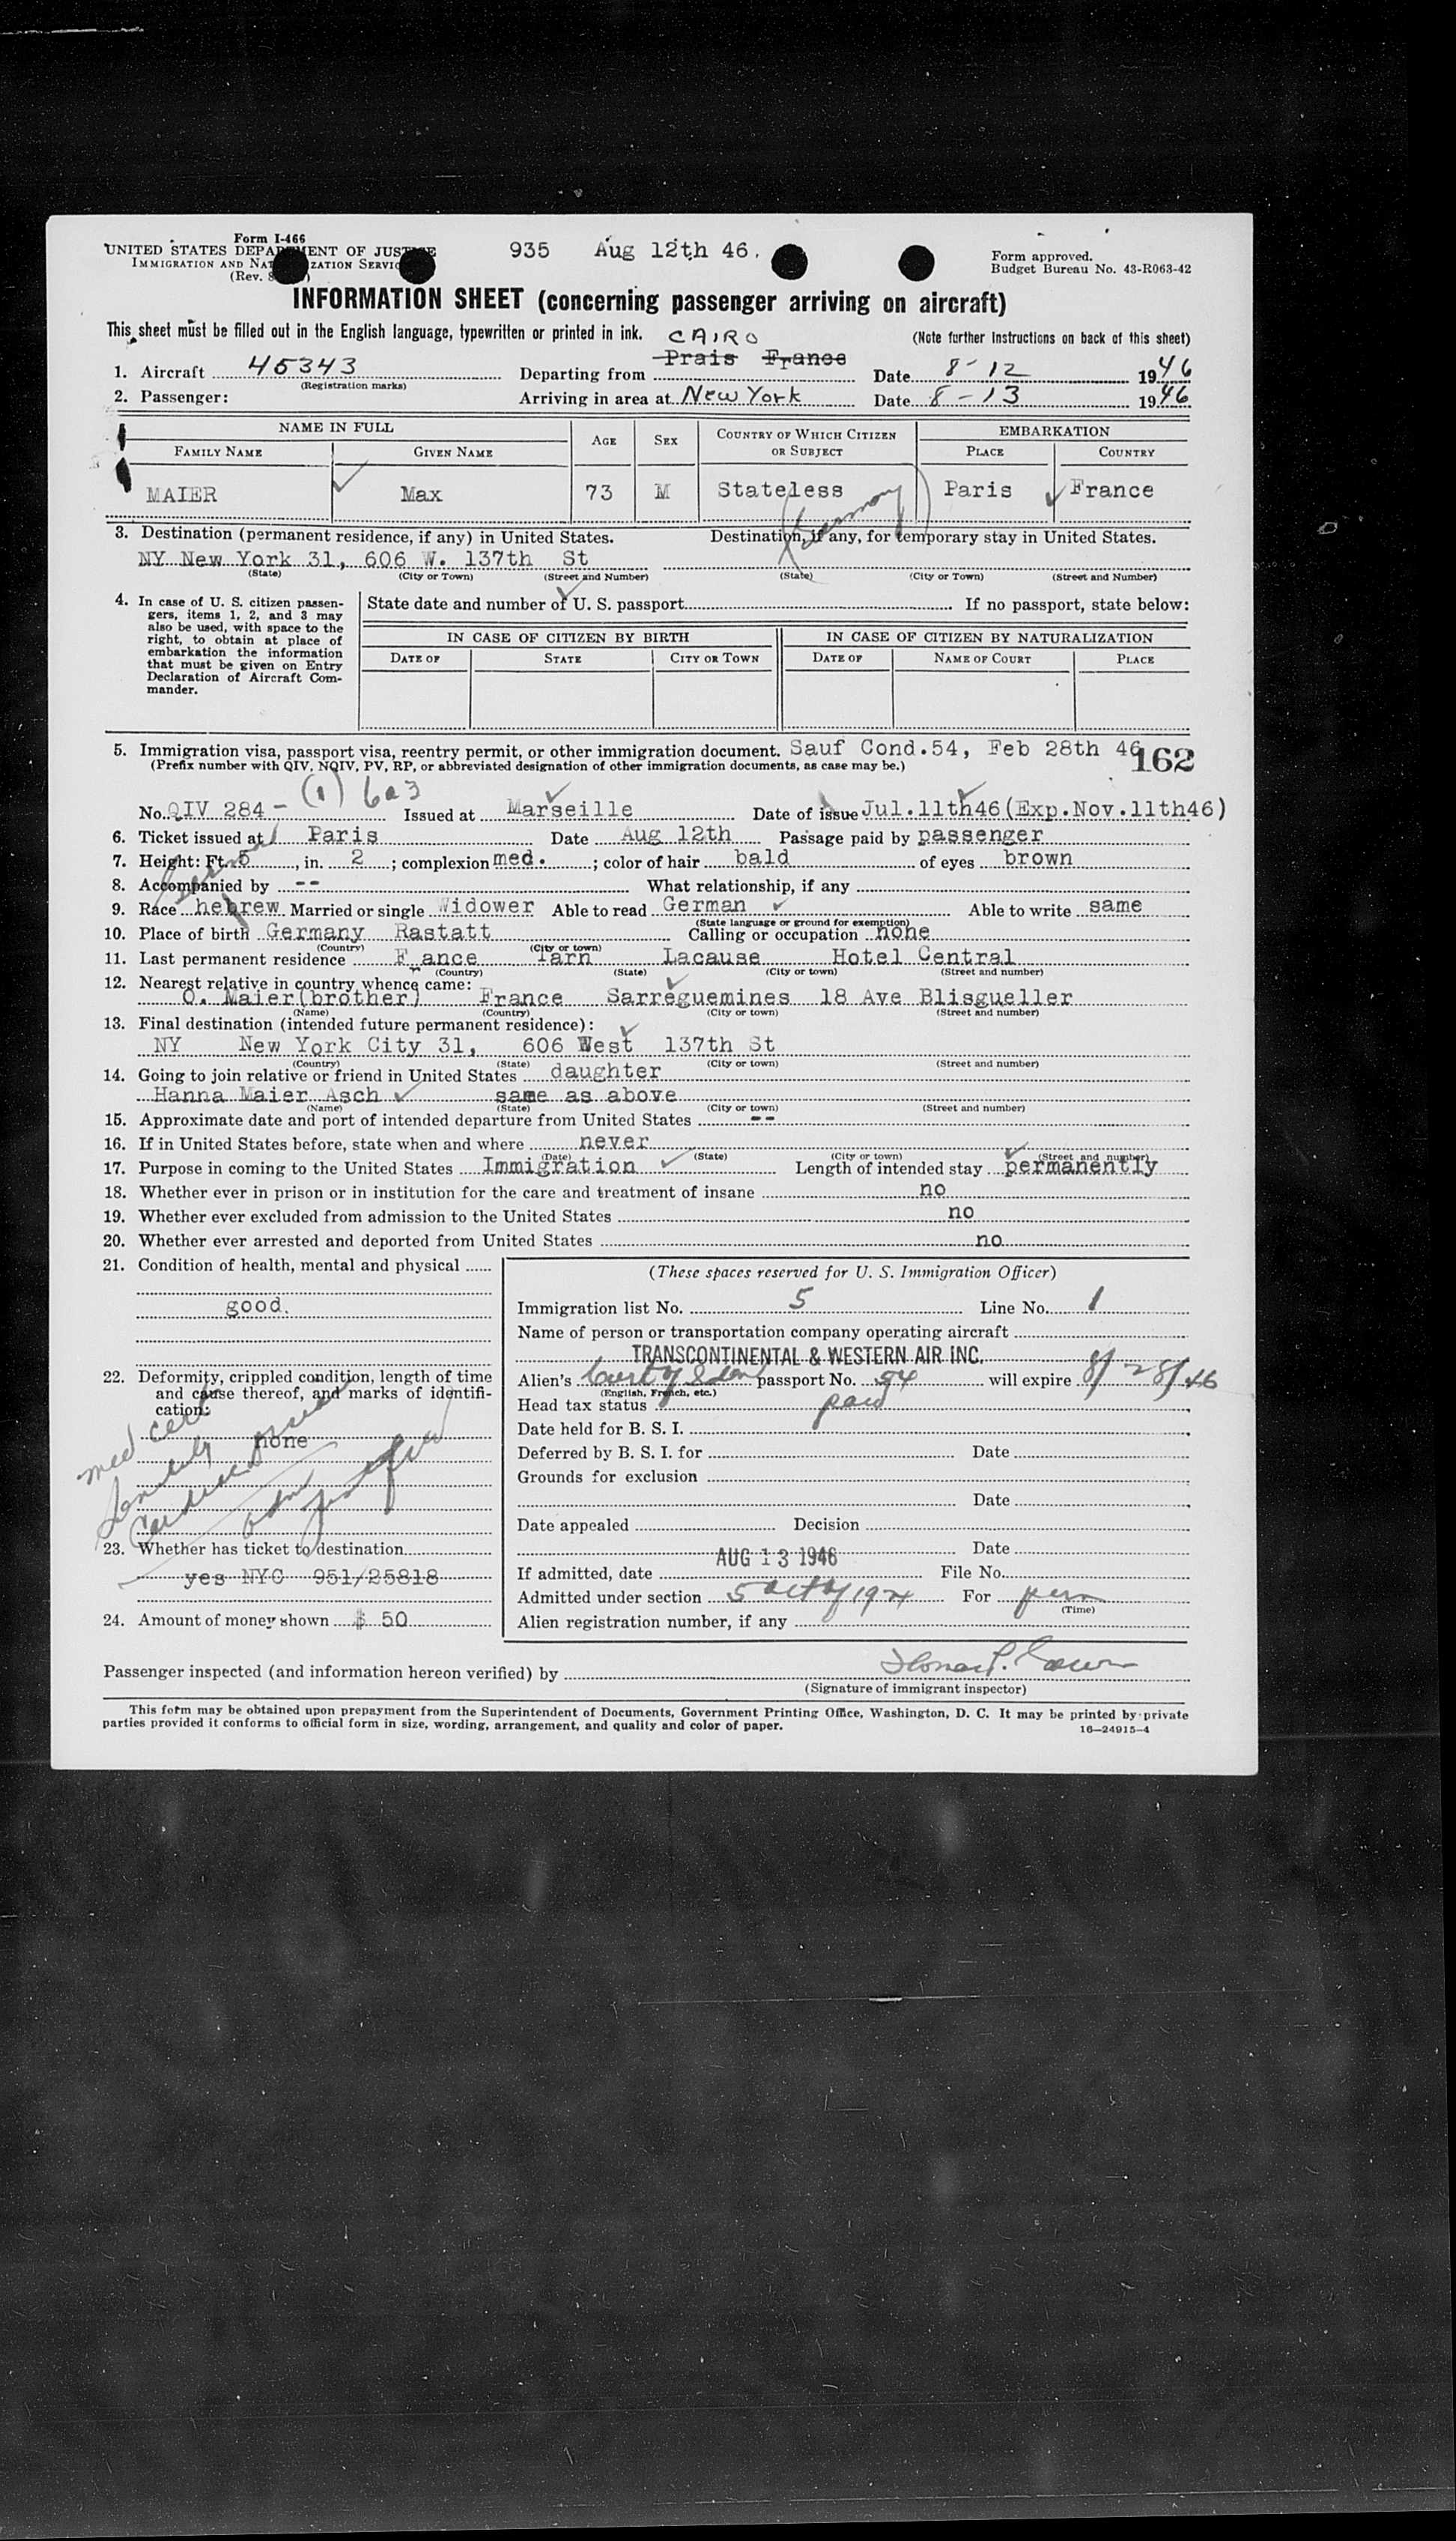 Form I-466
UNITED STATES DEPARTMENT OF JUSTICE
IMMIGRATION AND NATURALIZATION SERVICE
(Rev.
935 Aug 12th 46.
Form approved.
Budget Bureau No. 43-R063-42
INFORMATION SHEET (concerning passenger arriving on aircraft)
This sheet must be filled out in the English language, typewritten or printed in ink.
(Note further instructions on back of this sheet)
CAIRO
1. Aircraft 45343 Departing from Prais France Date 8-12 1946
(Registration marks)
2. Passenger: Arriving in area at New York Date 8-13 1946
NAME IN FULL AGE SEX COUNTRY OF WHICH CITIZEN OR SUBJECT EMBARKATION
FAMILY NAME GIVEN NAME PLACE COUNTRY
MAIER Max 73 M Stateless Paris France
(Germany)
3. Destination (permanent residence, if any) in United States. Destination, if any, for temporary stay in United States.
NY New York 31, 606 W. 137th St
(State) (City or Town) (Street and Number) (State) (City or Town) (Street and Number)
4. In case of U. S. citizen passen-
gers, items 1, 2, and 3 may
also be used, with space to the
right, to obtain at place of
embarkation the information
that must be given on Entry
Declaration of Aircraft Com-
mander.
State date and number of U. S. passport If no passport, state below:
IN CASE OF CITIZEN BY BIRTH IN CASE OF CITIZEN BY NATURALIZATION
DATE OF STATE CITY OR TOWN DATE OF NAME OF COURT PLACE
5. Immigration visa, passport visa, reentry permit, or other immigration document. Sauf Cond.54, Feb 28th 46
162
(Prefix number with QIV, NQIV, PV, RP, or abbreviated designation of other immigration documents, as case may be.)
(1) 6a3
No. QIV 284- Issued at Marseille Date of issue Jul.11th46(Exp.Nov.11th46)
6. Ticket issued at Paris Date Aug 12th Passage paid by passenger
7. Height: Ft. 5, in. 2; complexion med.; color of hair bald of eyes brown
8. Accompanied by -- What relationship, if any
German
9. Race hebrew Married or single Widower Able to read German Able to write same
(State language or ground for exemption)
10. Place of birth Germany Rastatt Calling or occupation none
(Country) (City or town)
11. Last permanent residence France Tarn Lacause Hotel Central
(Country) (State) (City or town) (Street and number)
12. Nearest relative in country whence came:
O. Maier(brother) France Sarreguemines 18 Ave Blisgueller
(Name) (Country) (City or town) (Street and number)
13. Final destination (intended future permanent residence):
NY New York City 31, 606 West 137th St
(Country) (State) (City or town) (Street and number)
14. Going to join relative or friend in United States daughter
Hanna Maier Asch same as above
(Name) (State) (City or town) (Street and number)
15. Approximate date and port of intended departure from United States --
16. If in United States before, state when and where never
(Date) (State) (City or town) (Street and number)
17. Purpose in coming to the United States Immigration Length of intended stay permanently
18. Whether ever in prison or in institution for the care and treatment of insane no
19. Whether ever excluded from admission to the United States no
20. Whether ever arrested and deported from United States no
21. Condition of health, mental and physical
good.
22. Deformity, crippled condition, length of time
and cause thereof, and marks of identifi-
cation:
none
med cert
Senility
23. Whether has ticket to destination
yes NYC 951/25818
24. Amount of money shown $ 50
(These spaces reserved for U. S. Immigration Officer)
Immigration list No. 5 Line No. 1
Name of person or transportation company operating aircraft
TRANSCONTINENTAL & WESTERN AIR INC.
Alien's Cert of Iden passport No. 54 will expire 8/28/46
(English, French, etc.)
Head tax status paid
Date held for B. S. I.
Deferred by B. S. I. for Date
Grounds for exclusion
Date
Date appealed Decision
Date
AUG 13 1946
If admitted, date File No.
Admitted under section 5 act of 1924 For perm
(Time)
Alien registration number, if any
Passenger inspected (and information hereon verified) by
(Signature of immigrant inspector)
This form may be obtained upon prepayment from the Superintendent of Documents, Government Printing Office, Washington, D. C. It may be printed by private
parties provided it conforms to official form in size, wording, arrangement, and quality and color of paper.
16—24915-4